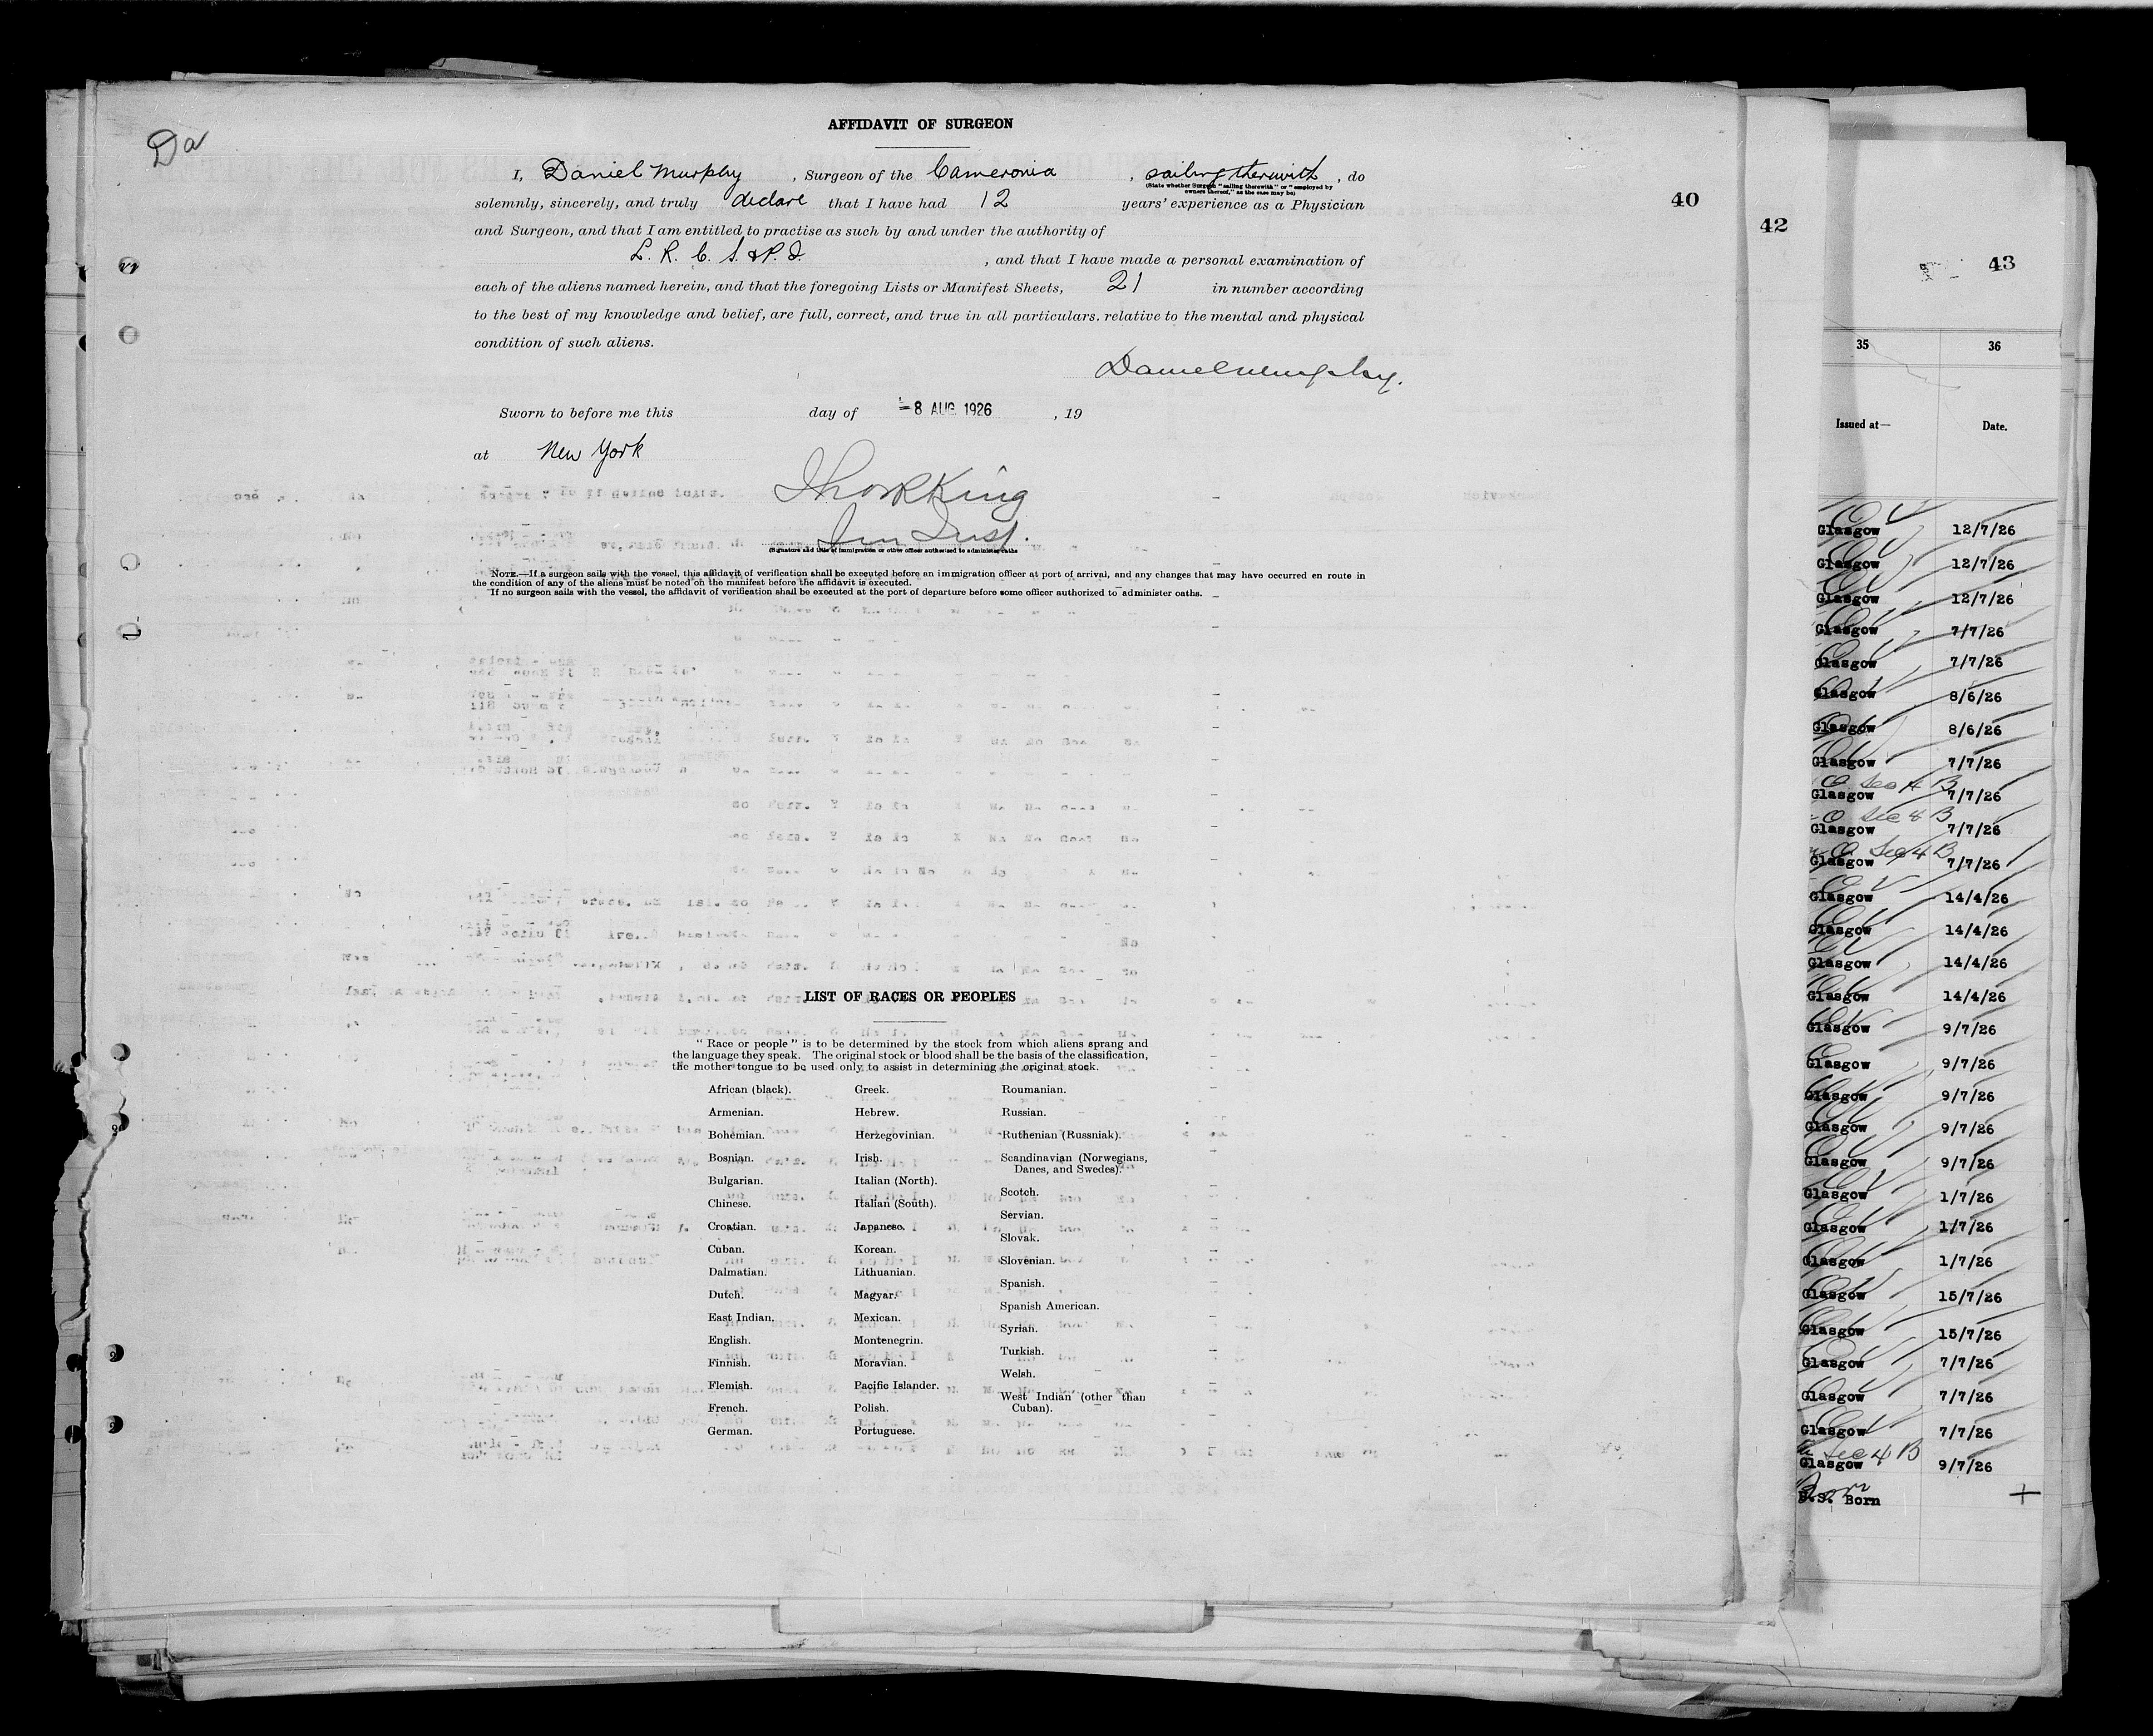 Da
AFFIDAVIT OF SURGEON
I, Daniel Murphy, Surgeon of the Cameronia, sailing therewith, do
(State whether Surgeon "sailing therewith" or "employed by
owners thereof," as the case may be)
solemnly, sincerely, and truly declare that I have had 12 years' experience as a Physician
and Surgeon, and that I am entitled to practise as such by and under the authority of
L. R. C. S. & P. I. , and that I have made a personal examination of
each of the aliens named herein, and that the foregoing Lists or Manifest Sheets, 21 in number according
to the best of my knowledge and belief, are full, correct, and true in all particulars. relative to the mental and physical
condition of such aliens.
Daniel Murphy.
Sworn to before me this day of -8 AUG 1926 , 19
at New York
King
Imm Insp.
(Signature and title of immigration or other officer authorised to administer oaths
NOTE.—If a surgeon sails with the vessel, this affidavit of verification shall be executed before an immigration officer at port of arrival, and any changes that may have occurred en route in
the condition of any of the aliens must be noted on the manifest before the affidavit is executed.
If no surgeon sails with the vessel, the affidavit of verification shall be executed at the port of departure before some officer authorized to administer oaths.
LIST OF RACES OR PEOPLES
"Race or people" is to be determined by the stock from which aliens sprang and
the language they speak. The original stock or blood shall be the basis of the classification,
the mother tongue to be used only to assist in determining the original stock.
African (black).
Armenian.
Bohemian.
Bosnian.
Bulgarian.
Chinese.
Croatian.
Cuban.
Dalmatian.
Dutch.
East Indian.
English.
Finnish.
Flemish.
French.
German.
Greek.
Hebrew.
Herzegovinian.
Irish.
Italian (North).
Italian (South).
Japanese.
Korean.
Lithuanian.
Magyar.
Mexican.
Montenegrin.
Moravian.
Pacific Islander.
Polish.
Portuguese.
Roumanian.
Russian.
Ruthenian (Russniak).
Scandinavian (Norwegians,
Danes, and Swedes).
Scotch.
Servian.
Slovak.
Slovenian.
Spanish.
Spanish American.
Syrian.
Turkish.
Welsh.
West Indian (other than
Cuban).
40
42
43
35 36
Issued at— Date.
Glasgow 12/7/26
Glasgow 12/7/26
Glasgow 12/7/26
Glasgow 7/7/26
Glasgow 7/7/26
Glasgow 8/6/26
Glasgow 8/6/26
Glasgow 7/7/26
Sec 4 B
Glasgow 7/7/26
Sec 4 B
Glasgow 7/7/26
Sec 4 B
Glasgow 7/7/26
Glasgow 14/4/26
Glasgow 14/4/26
Glasgow 14/4/26
Glasgow 14/4/26
Glasgow 9/7/26
Glasgow 9/7/26
Glasgow 9/7/26
Glasgow 9/7/26
Glasgow 9/7/26
Glasgow 1/7/26
Glasgow 1/7/26
Glasgow 1/7/26
Glasgow 15/7/26
Glasgow 15/7/26
Glasgow 7/7/26
Glasgow 7/7/26
Glasgow 7/7/26
Sec 4 B
Glasgow 9/7/26
Born
U.S. Born